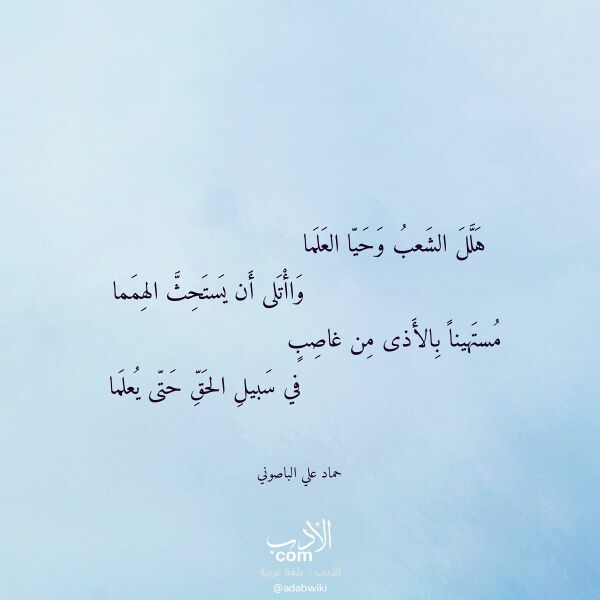 هَلَّلَ الشَعبُ وَحَيّا العَلَما
وَاأْتَلى أَن يَستَحِثَّ الهِمَما
مُستَهيناً بِالأَذى مِن غاصِبٍ
في سَبيلِ الحَقِّ حَتّى يُعلَما
حماد علي الباصوني
الأدب
com
الأدب .. بلغة عربية
@adabwiki